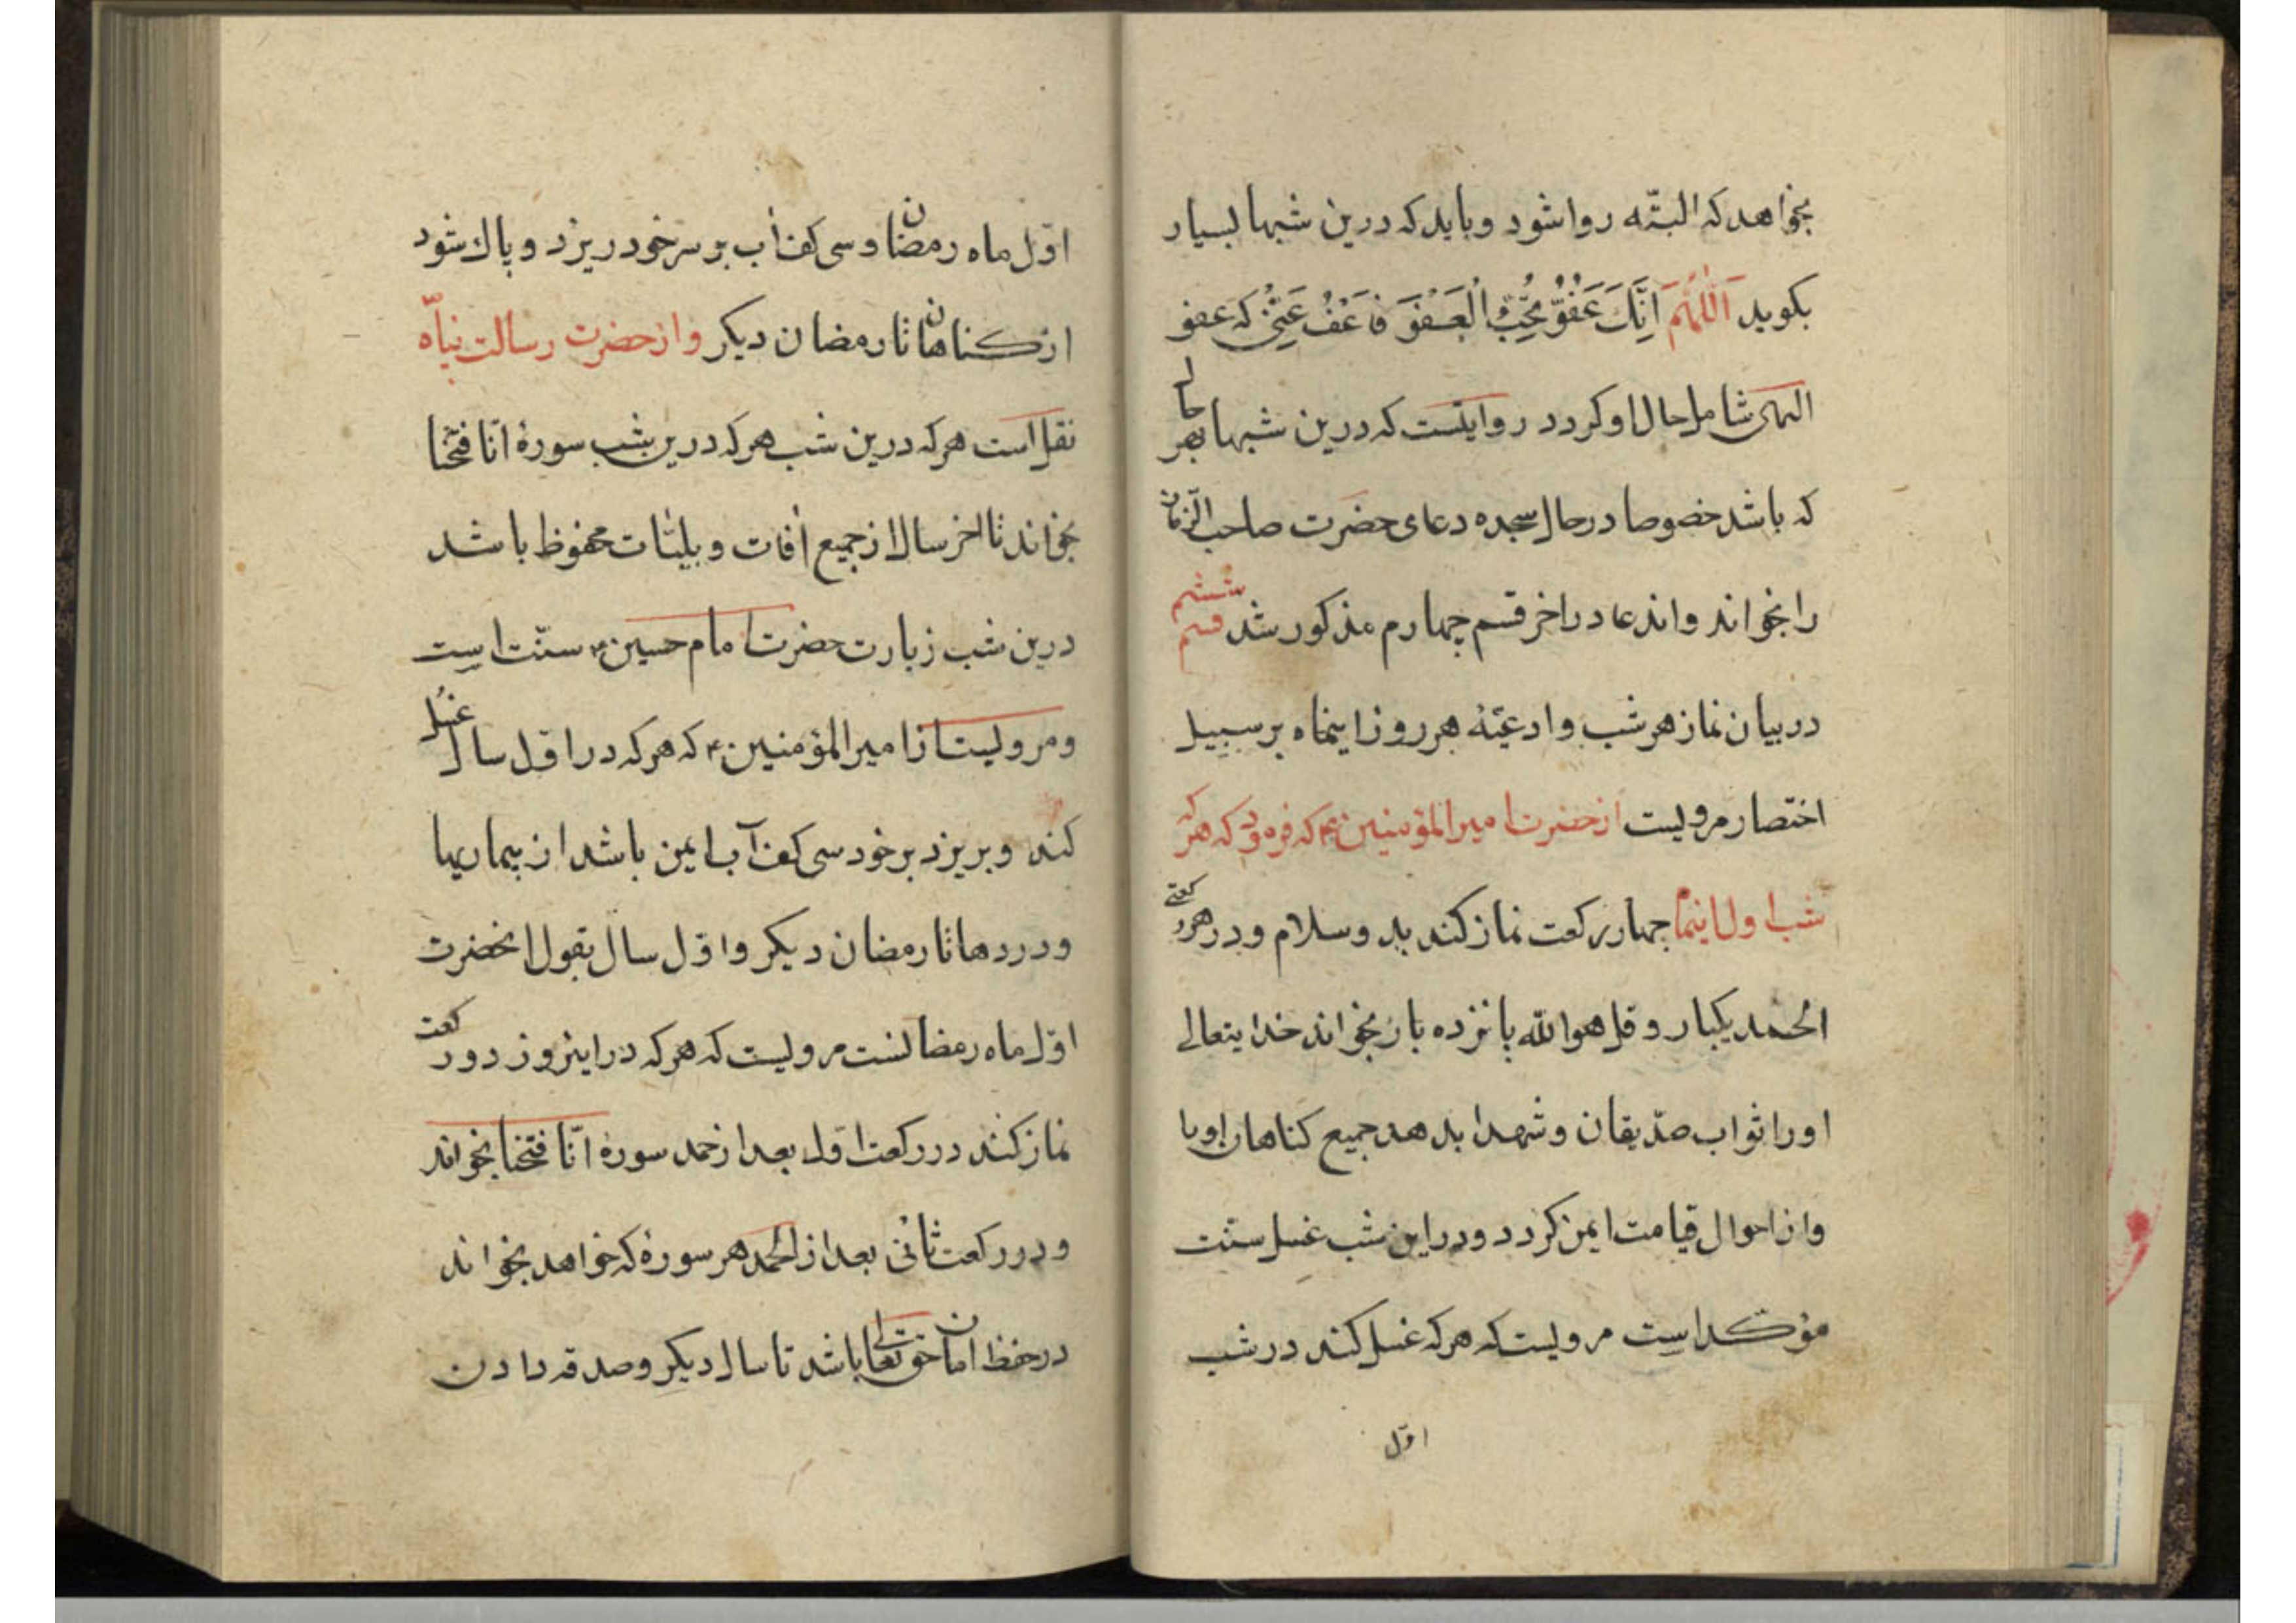 بخواهد که البتّه روا شود و باید که درین شبها بسیار
بکوید اَللّٰهُمَّ اِنَّکَ عَفُوٌّ تُحِبُّ الْعَفْوَ فَاعْفُ عَنّی که عفو
الهی شامل حال او کردد روایتست که درین شبها بهر حالی
که باشد خصوصا در حال سجده دعای حضرت صاحب الزّمان
را بخواند و اندعا در اخر قسم چهارم مذکور شد قسم ششم
در بیان نماز هر شب و ادعیّهٔ هر روز اینماه بر سبیل
اختصار مرویست از حضرت امیر المؤمنین ع که فرمود که هر که
شب اول اینماه چهار رکعت نماز کند بدو سلام و در هر رکعتی
الحمد یکبار و قل هو الله پانزده بار بخواند خدایتعالی
او را ثواب صدّیقان و شهدا بدهد جمیع کناهان او با
و از احوال قیامت ایمن کردد و در این شب غسل سنّت
مؤکد است مرویست که هر که غسل کند در شب
اوّل
اوّل ماه رمضان و سی کف اب بر سر خود ریزد و پاک شود
از کناهان تا رمضان دیکر و از حضرت رسالت پناه
نقل است هر که درین شب هر که درین شب سورهٔ انّا فتحنا
بخواند تا اخر سال از جمیع افات و بلیّات محفوظ باشد
درین شب زیارت حضرت امام حسین ع سنّت است
و مرویست از امیر المؤمنین ع که هر که در اوّل سال غسل
کند و بریزد بر خود سی کف آب ایمن باشد از بیماریها
و دردها تا رمضان دیکر و اوّل سال بقول انحضرت
اوّل ماه رمضانست مرویست که هر که در اینروز دو رکعت
نماز کند در رکعت اوّل بعد از حمد سوره انّا فتحنا بخواند
و در رکعت ثانی بعد از الحمد هر سورهٔ که خواهد بخواند
در حفظ امان حق تعالی باشد تا سال دیکر و صدقه دادن